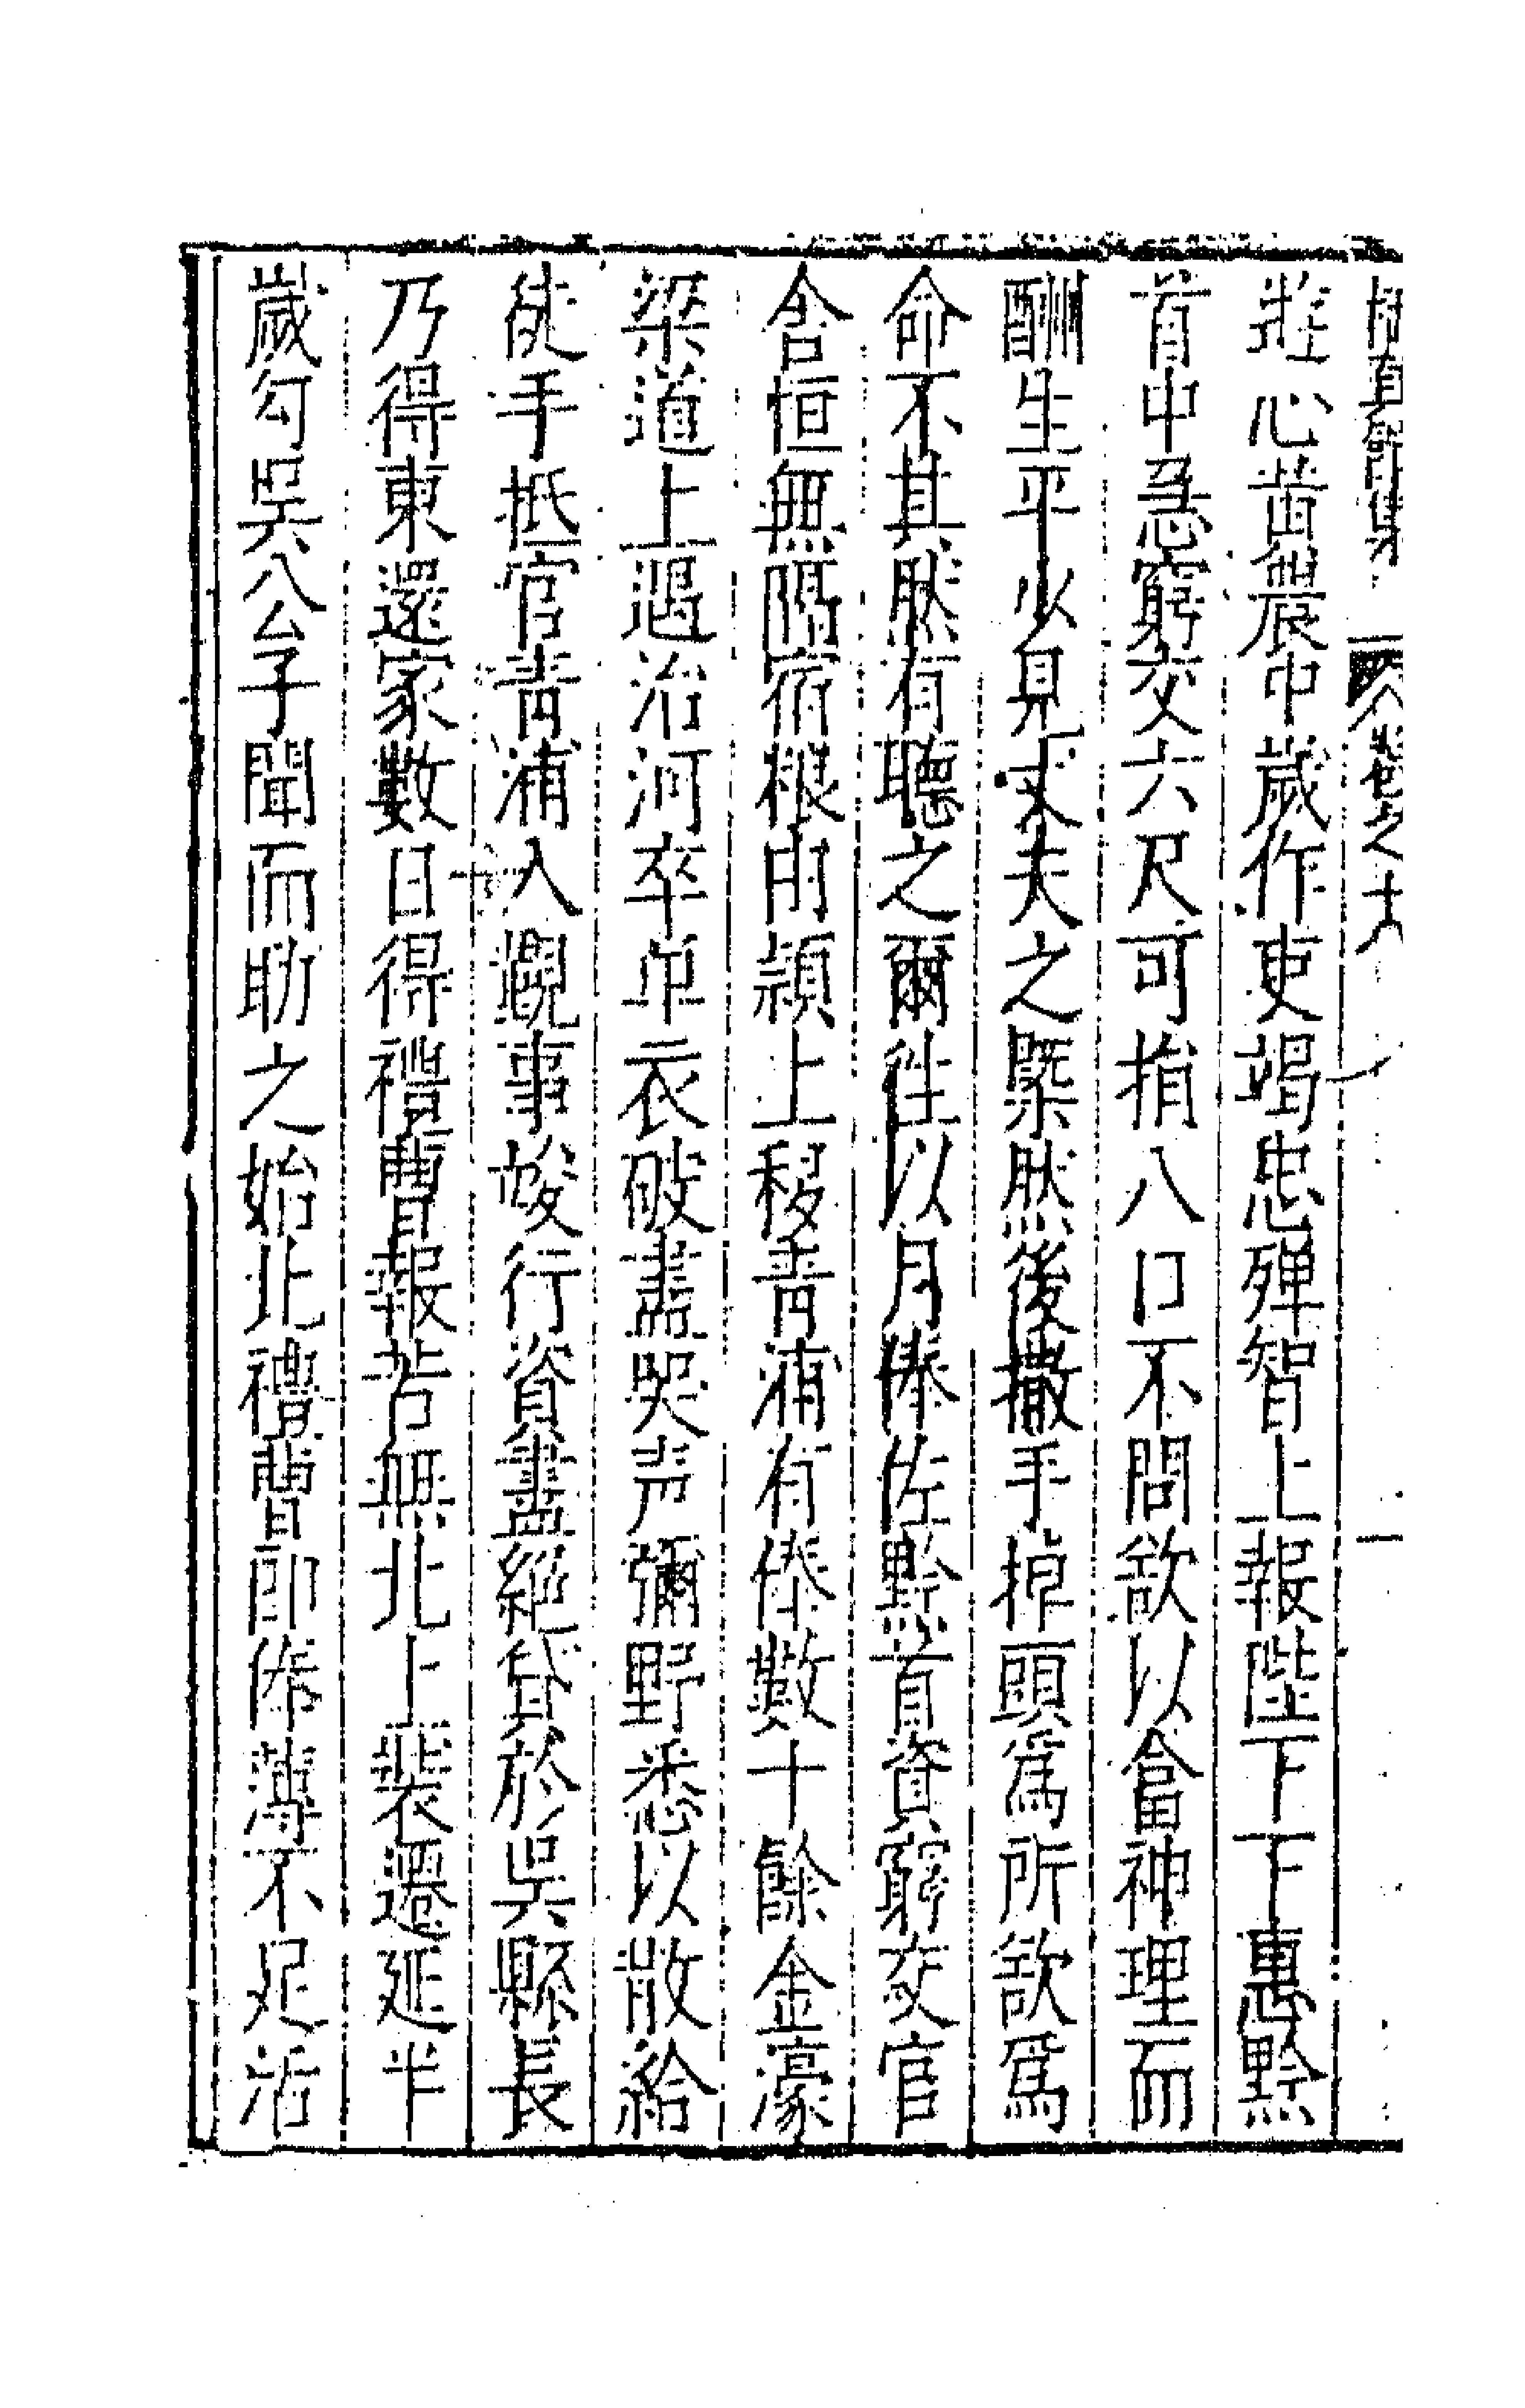 栖真館集 卷之十六 一
壯心菑農中歲作吏竭忠殫智上報陛下下惠黔
首中急窮交六尺可捐八口不問欲以會神理而
酬生平少見丈夫之槩然後撒手掉頭爲所欲爲
命不其然有聽之爾徃以月俸佐黔首資窮交官
舍恒無隔宿粮由潁上移青浦有俸數十餘金濠
梁道上遇治河卒卒衣破盡哭声彌野悉以散給
徒手抵官青浦入覲事竣行資盡絕貸於吳縣長
乃得東還家數日得禮曹報苦無北上裝遷延半
歲勾吳公子聞而助之始北禮曹郎俸薄不足活